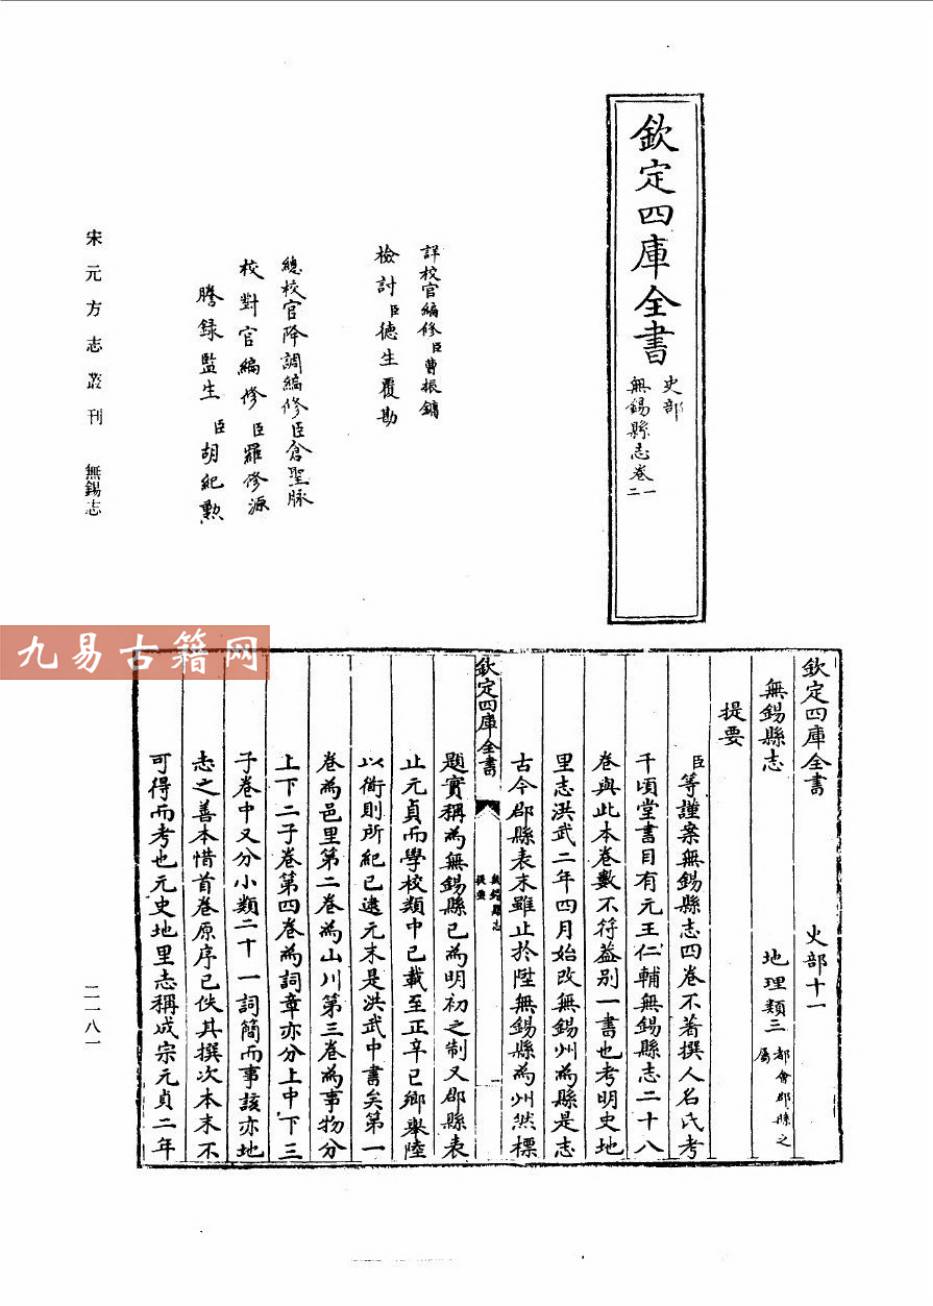 欽定四庫全書
史部
無錫縣志卷一
二
詳校官編修臣曹振鏞
檢討臣德生覆勘
總校官降調編修臣倉聖脉
校對官編修臣羅修源
謄録監生臣胡紀勲
宋元方志叢刊 無錫志
九易古籍网
欽定四庫全書 史部十一
無錫縣志 地理類三都會郡縣之屬
提要
臣等謹案無錫縣志四卷不著撰人名氏考
千頃堂書目有元王仁輔無錫縣志二十八
卷與此本卷數不符蓋别一書也考明史地
里志洪武二年四月始改無錫州為縣是志
古今郡縣表末雖止於陞無錫縣為州然標
欽定四庫全書
無錫縣志
提要
一
題實稱為無錫縣已為明初之制又郡縣表
止元貞而學校類中已載至正辛巳鄉舉陸
以衜則所紀已逮元末是洪武中書矣第一
卷為邑里第二卷為山川第三卷為事物分
上下二子卷第四卷為詞章亦分上中下三
子卷中又分小類二十一詞簡而事該亦地
志之善本惜首卷原序已佚其撰次本末不
可得而考也元史地里志稱成宗元貞二年
二一八一